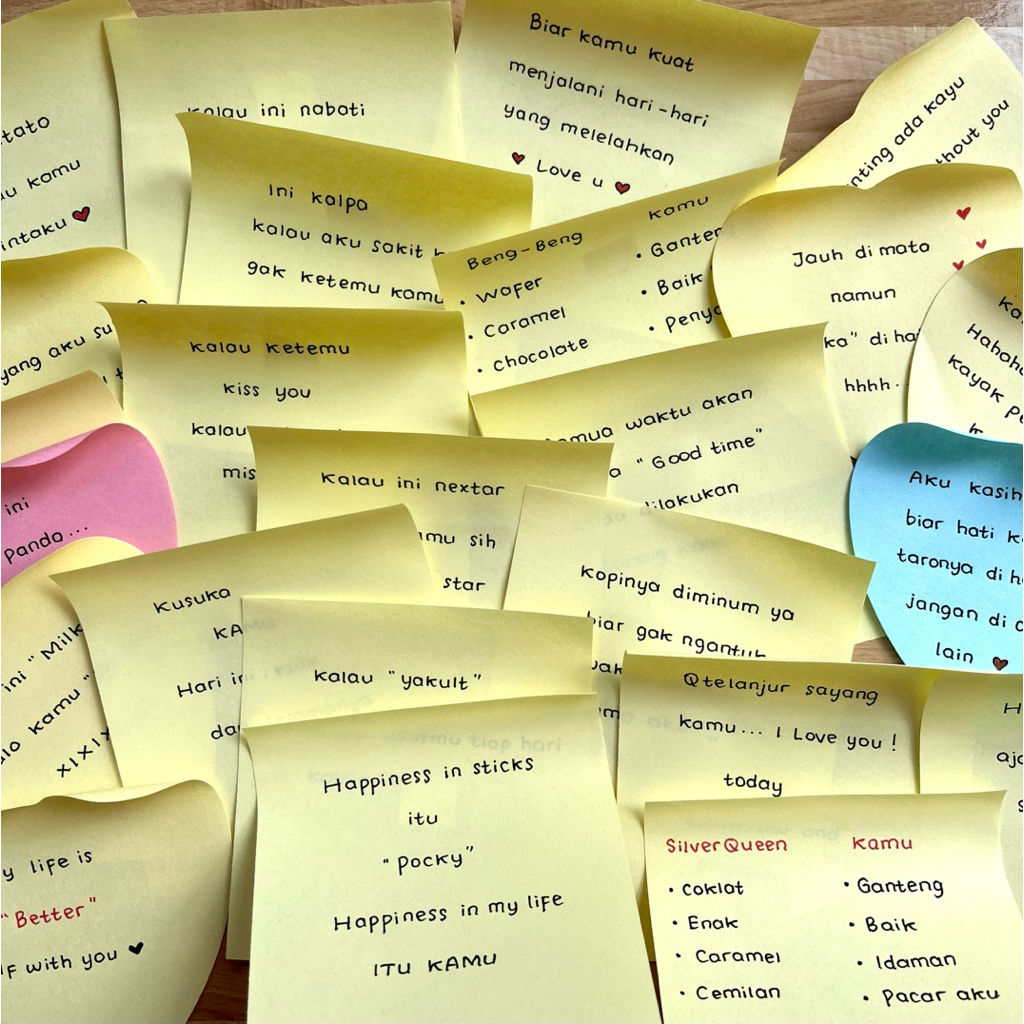 kalau ini nabati
Biar kamu kuat
menjalani hari-hari
yang melelahkan
Love u
nting ada kayu
hout you
tato
u kamu
intaku
Ini kalpa
kalau aku sakit
gak ketemu kamu
Beng-Beng
• Wafer
• Caramel
• Chocolate
Kamu
• Ganten
• Baik
• Penya
Jauh di mata
namun
ka" di ha
hhhh..
Hahah
kayak
yang aku su
Kalau ketemu
kiss you
kalau
mis
mua waktu akan
a "Good time"
dilakukan
ini
panda...
Kalau ini nextar
mu sih
star
Aku kasih
biar hati k
taronya di h
jangan di
lain
kopinya diminum ya
biar gak ngantuk
ini "Milk
lo kamu "
xixix
Kusuka
KA
Hari in
da
Kalau "yakult"
kamu tiap hari
Qtelanjur sayang
kamu... I Love you !
today
H
aja
s
y life is
"Better"
F with you
Happiness in sticks
itu
"pocky"
Happiness in my life
ITU KAMU
SilverQueen
• Coklat
• Enak
• Caramel
• Cemilan
Kamu
• Ganteng
• Baik
• Idaman
• Pacar aku